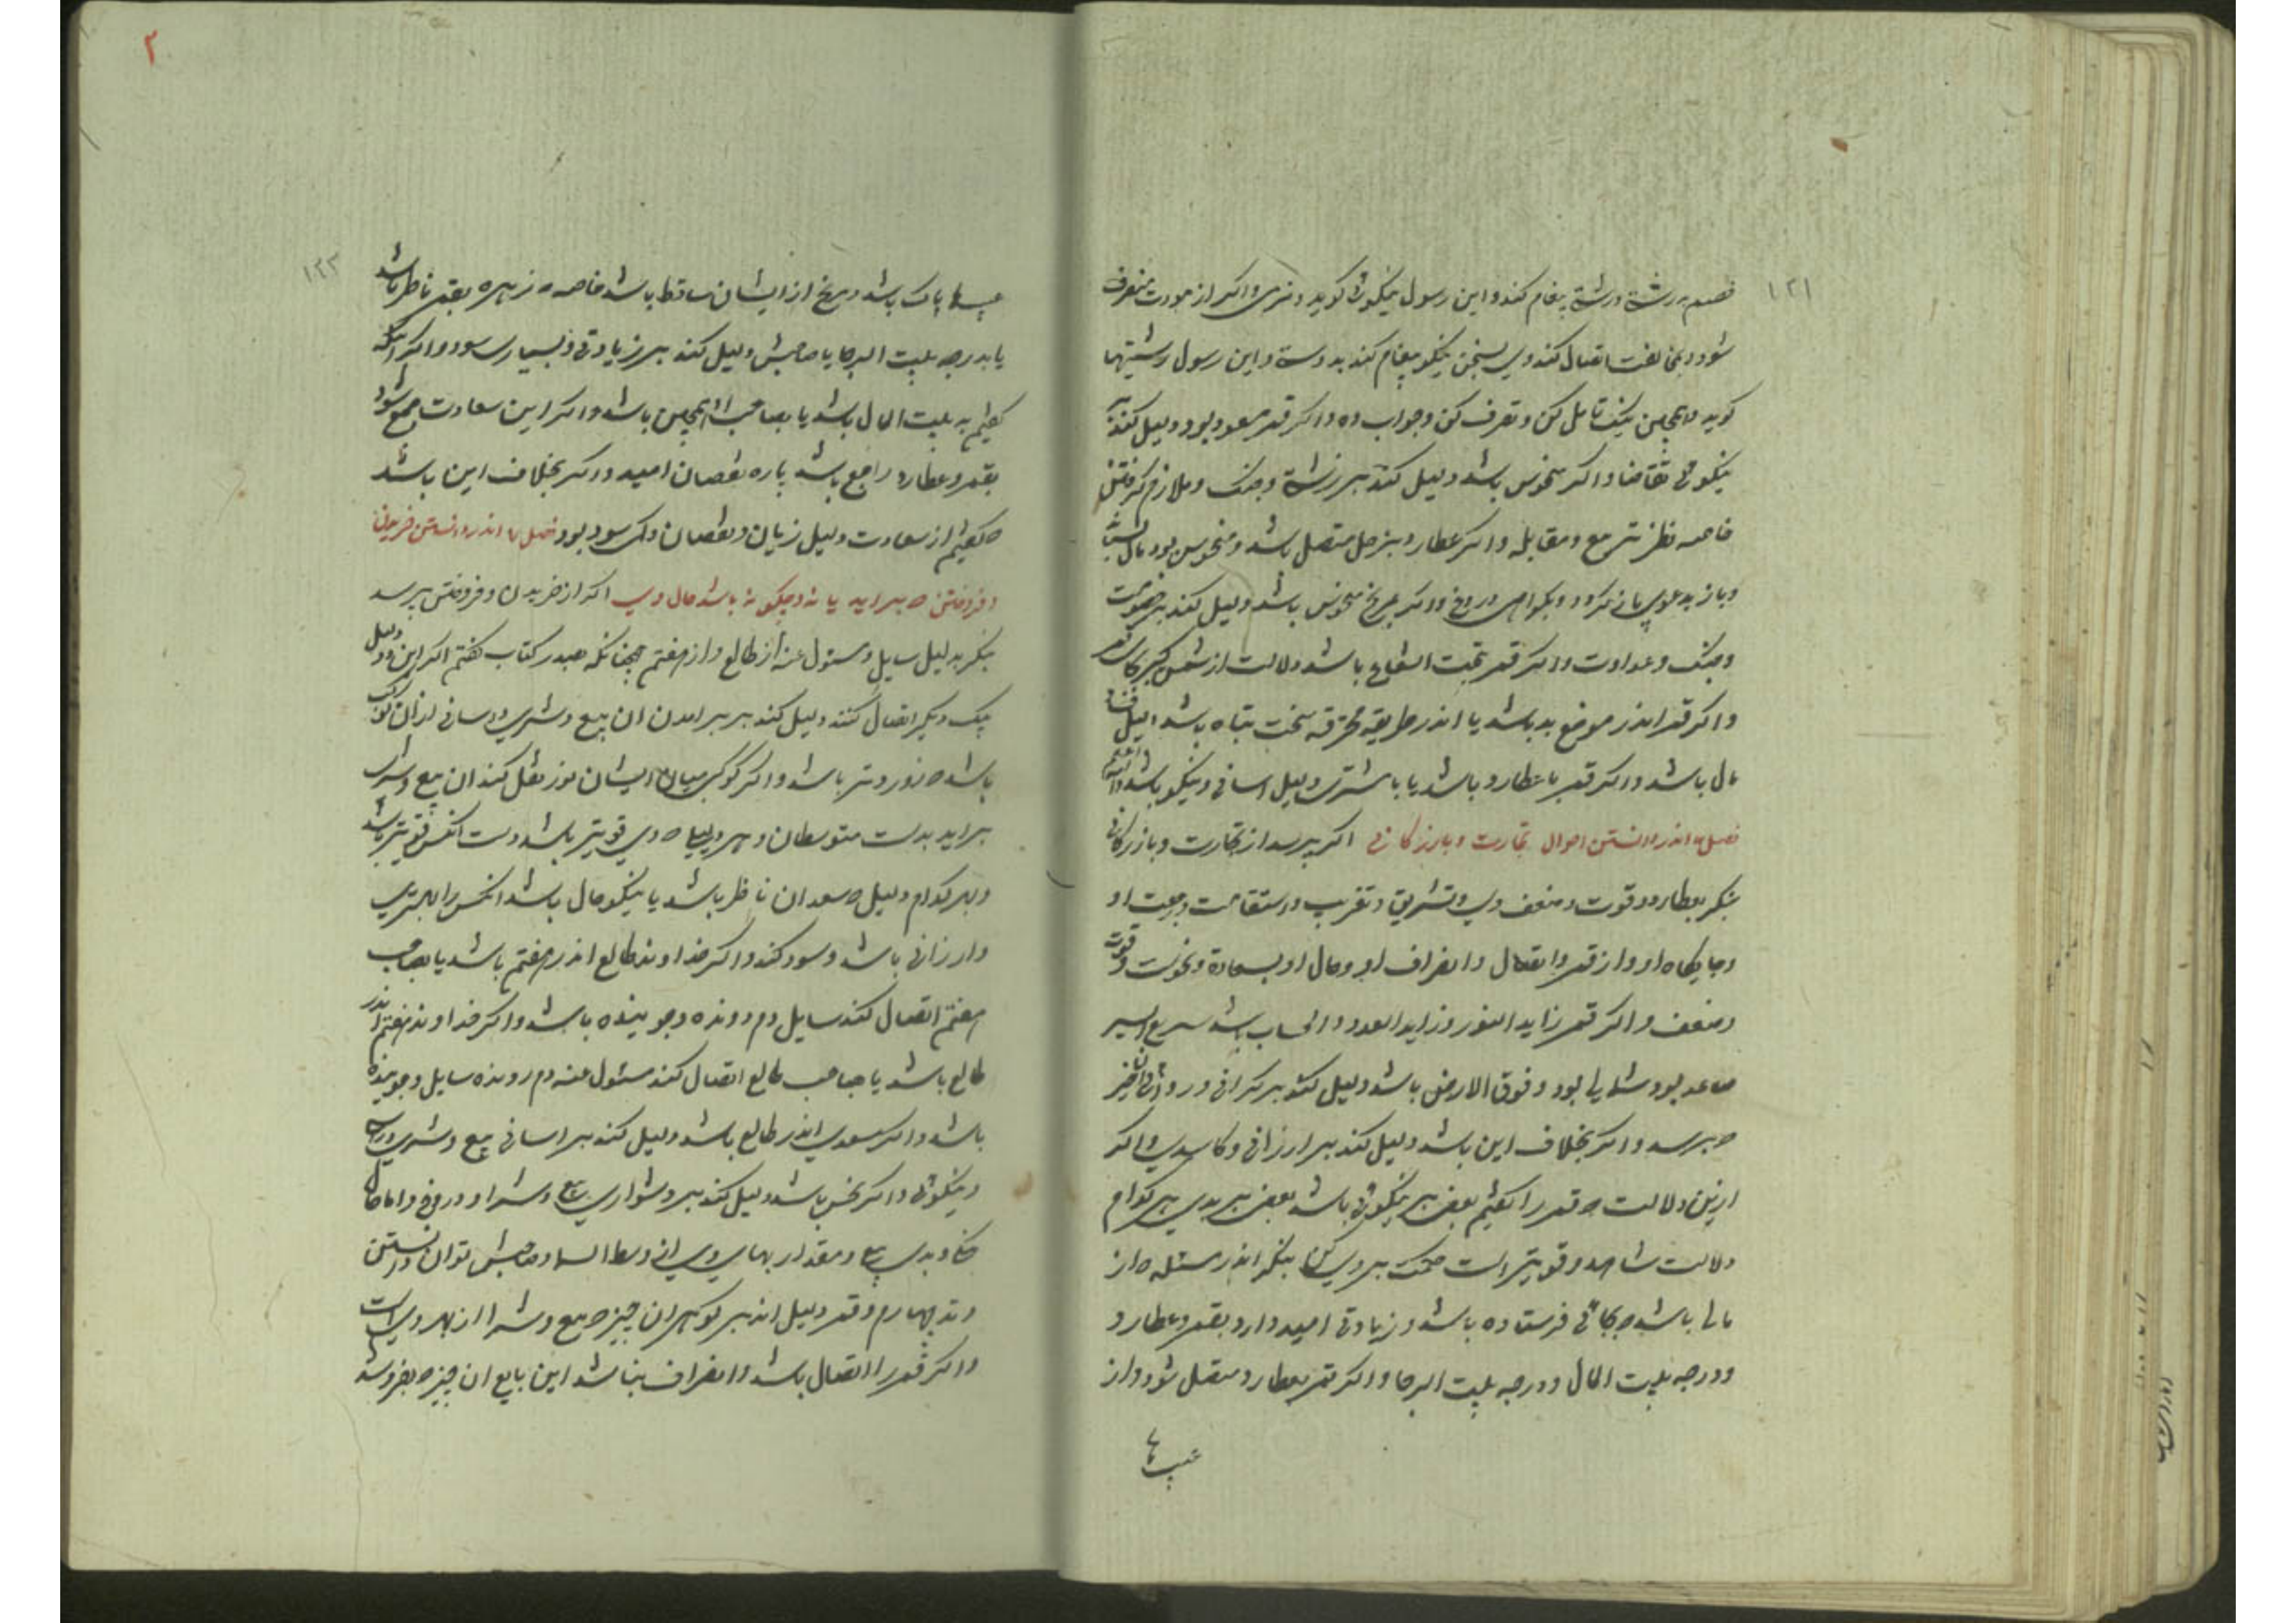 ۱۲۱
خصم درشة درشة پیغام کند و این رسول نیکوئی کوید و نرمی و اکر از مودت منصرف
شود و بمخالفت اتصال کند وی بسخن نیکو پیغام کند بدوستی و این رسول زشتیها
کوید و همچنین نیک تامل کن و تصرف کن و جواب ده و اکر قمر مسعود بود دلیل کند بر
نیکوئی تقاضا و اکر منحوس باشد دلیل کند بر زشتی و جنک و ملازم کرفتن
خاصه نظر تربیع و مقابله و اکر عطارد بزحل متصل باشد و منحوس بود مال
و باز بدعوی باز کردد و بکواهی دروغ و اکر بمریخ منحوس باشد دلیل کند بر خصومت
و جنک و عداوت و اکر قمر تحت الشعاع باشد دلالت از شمس کیر بجای قمر
و اکر قمر اندر موضع بد باشد یا اندر طریقه محترقه سخت تباه باشد دلیل فساد
مال باشد و اکر قمر با عطارد باشد یا با مشتری دلیل آسانی و نیکو باشد
فصل اندر دانستن احوال تجارت و بازرکانی اکر پرسد از تجارت و بازرکانی
بنکر بعطارد و قوت و ضعف وی و تشریق و تغریب و استقامت و رجعت او
و جایکاه او و از قمر و اتصال و انصراف او و حال او بسعادة و نحوست و قوت
و ضعف و اکر قمر زاید النور و زاید العدد و الحساب باشد سریع السیر
صاعد بود شمالی بود و فوق الارض باشد دلیل کند بر کرانی و روائی آن چیز
ه پرسد و اکر بخلاف این باشد دلیل کند بر ارزانی و کاسدی و اکر
ازین دلالت ه قمر را کفتیم بعضی بر نیکوئی باشد بعضی بر بدی بهر کدام
دلالت شاهد و قویتر است حکم بر وی کن بنکر اندر مسئله ه از
مالی باشد ه بجائی فرستاده باشد و زیادتی امید دارد بقمر و عطارد
و درجه بیت المال و درجه بیت الرجا و اکر قمر بعطارد متصل شود و از
عیبها
۲
۱۲۲
عیبها پاک باشد و مریخ از ایشان ساقط باشد خاصه ه زهره بقمر ناظر باشد
یا بدرجه بیت الرجا یا صاحبش دلیل کند بر زیادتی و بسیار سود و اکر آنکه
کفتیم به بیت المال باشد یا بصاحب او همچنین باشد و اکر این سعادت جمع شود
بقمر و عطارد راجع باشد پاره نقصان امید و اکر بخلاف این باشد
ه کفتیم از سعادت دلیل زیان و نقصان و کم سود بود فصل اندر دانستن خریدن
و فروختن ه براید یا نه و چکونه باشد حال وی اکر از خریدن و فروختن پرسد
بنکر بدلیل سایل و مسئول عنه از طالع و از هفتم همچنانکه بصدر کتاب کفتم اکر این دو دلیل
بیک دیکر اتصال کنند دلیل کند بر برامدن ان بیع و شری و آسانی از آن کوکب
باشد ه زودتر باشد و اکر کوکبی میان ایشان نور نقل کند ان بیع و شرا
براید بدست متوسطان و هر دلیلی ه وی قویتر باشد دست آنکس قویتر باشد
و بهر کدام دلیل ه سعدان ناظر باشد یا نیکو حال باشد انکس را بهتری
و ارزانی باشد و سود کند و اکر خداوند طالع اندر هفتم باشد یا بصاحب
هفتم اتصال کند سایل دم رونده و جوینده باشد و اکر خداوند هفتم اندر
طالع باشد یا بصاحب طالع اتصال کند مسئول عنه دم رونده سایل و جوینده
باشد و اکر سعدی اندر طالع باشد دلیل کند بر آسانی بیع و شری و راست
و نیکوئی و اکر نحس باشد دلیل کند بر دشواری بیع و شرا و دروغ و اما حال
نیکی و بدی بیع و مقدار بهای وی از وسط السما و صاحبش توان دانستن
وتد چهارم و قمر دلیل اند بر کوهر ان چیز ه بیع و شرا از بهر وی است
و اکر قمر را اتصال باشد و انصراف نباشد این بایع ان چیز ه بفروشد